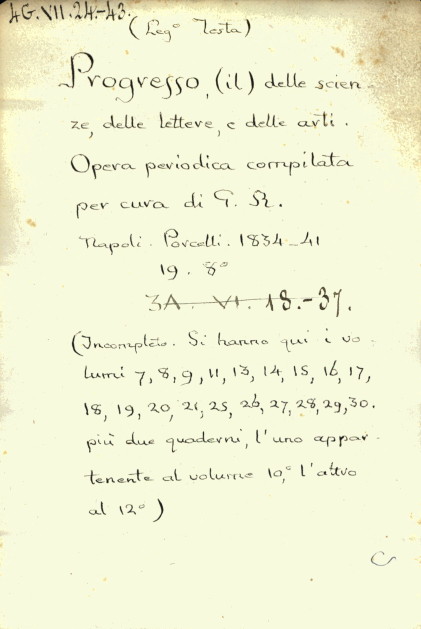 4G.VII.24.-43.
(Leg.º Testa)
Progresso, (il) delle scien-
ze, delle lettere, e delle arti.
Opera periodica compilata
per cura di G. R.
Napoli. Porcelli. 1834-41
19. 8º
3A. VI. 18.-37.
(Incompleto. Si hanno qui i vo-
lumi 7, 8, 9, 11, 13, 14, 15, 16, 17,
18, 19, 20, 21, 25, 26, 27, 28, 29, 30.
più due quaderni, l'uno appar-
tenente al volume 10,º l'altro
al 12º)